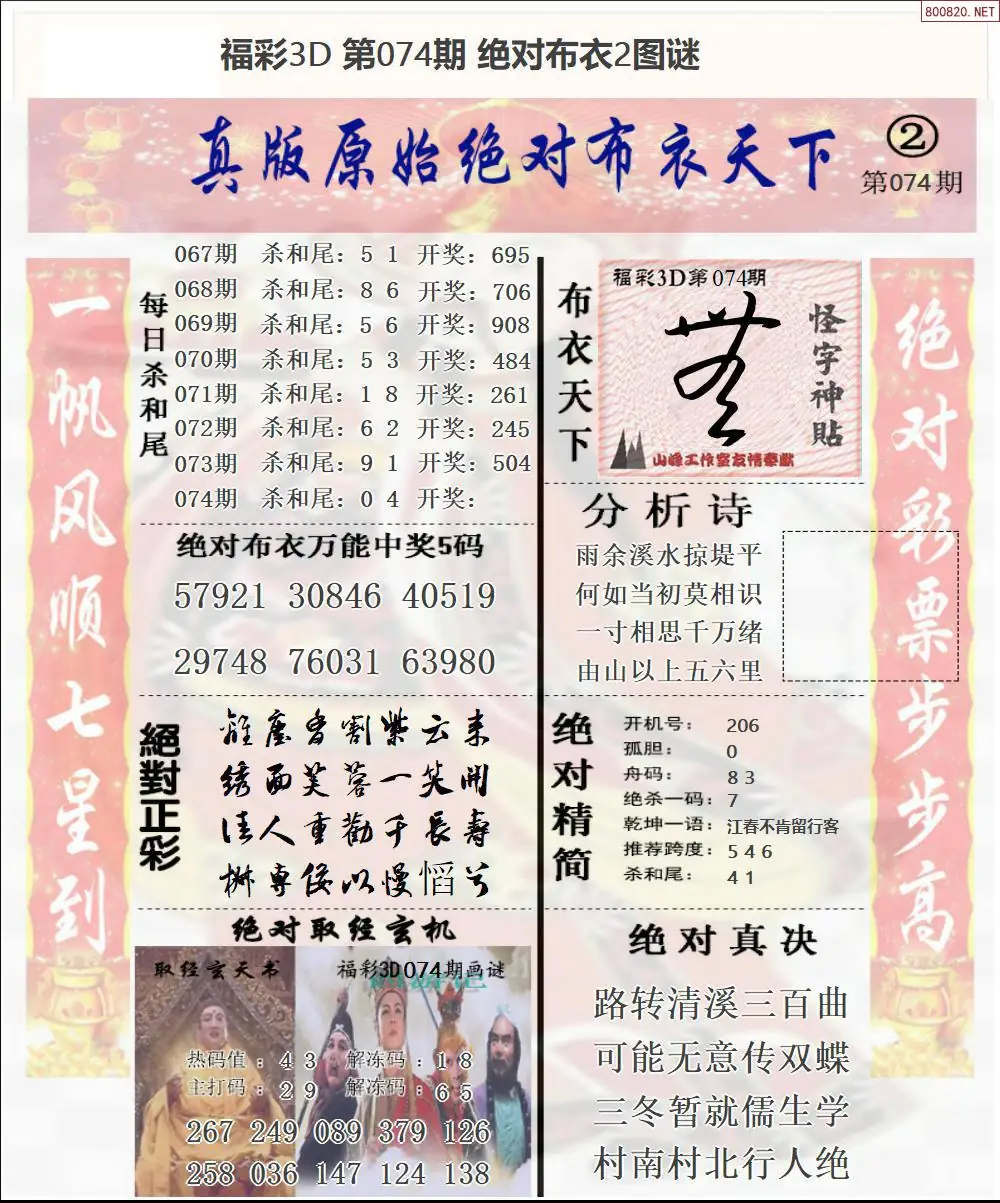 800820.NET
福彩3D 第074期 绝对布衣2图谜
真版原始绝对布衣天下
②
第074期
一帆风顺七星到
每日杀和尾
067期 杀和尾：5 1 开奖：695
068期 杀和尾：8 6 开奖：706
069期 杀和尾：5 6 开奖：908
070期 杀和尾：5 3 开奖：484
071期 杀和尾：1 8 开奖：261
072期 杀和尾：6 2 开奖：245
073期 杀和尾：9 1 开奖：504
074期 杀和尾：0 4 开奖：
绝对布衣万能中奖5码
57921 30846 40519
29748 76031 63980
絕對正彩
紫云来
绣面芙蓉一笑開
佳人重勸千長壽
绝对取经玄机
取经玄天书
福彩3D074期画谜
热码值：4 3 解冻码：1 8
主打码：2 9 解冻码：6 5
267 249 089 379 126
258 036 147 124 138
布衣天下
福彩3D第074期
怪字神贴
山峰工作室友情奉献
分析诗
雨余溪水掠堤平
何如当初莫相识
一寸相思千万绪
由山以上五六里
绝对精简
开机号： 206
孤胆： 0
舟码： 8 3
绝杀一码：7
乾坤一语：江春不肯留行客
推荐跨度：5 4 6
杀和尾： 4 1
绝对真决
路转清溪三百曲
可能无意传双蝶
三冬暂就儒生学
村南村北行人绝
绝对彩票步步高